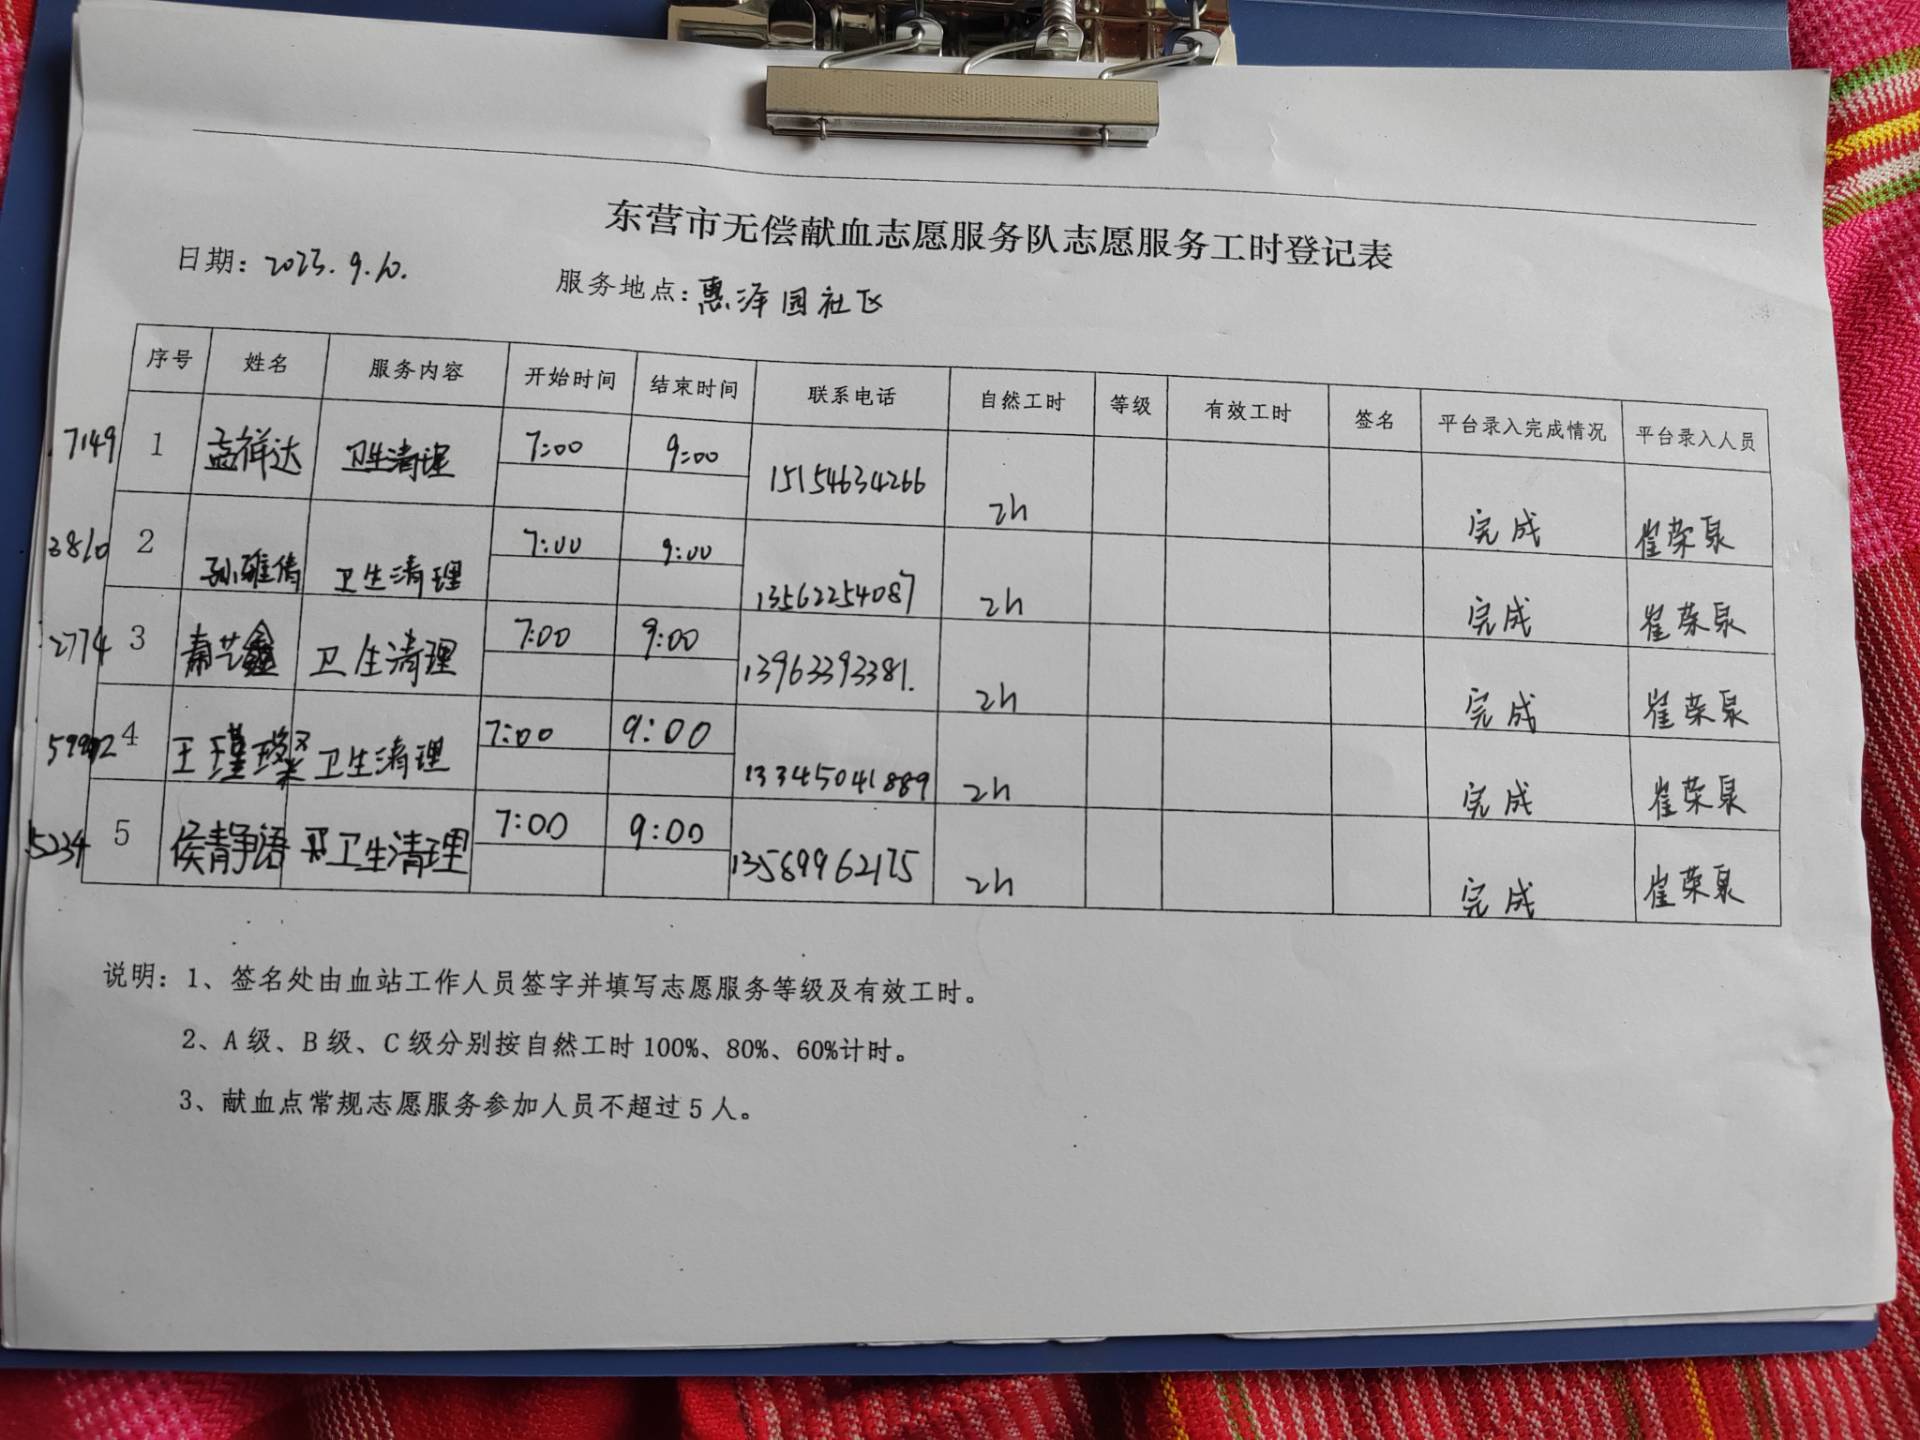 东营市无偿献血志愿服务队志愿服务工时登记表
日期：2023.9.10.
服务地点：惠泽园社区
序号 姓名 服务内容 开始时间 结束时间 联系电话 自然工时 等级 有效工时 签名 平台录入完成情况 平台录入人员
7149 1 孟祥达 卫生清理 7:00 9:00 15154634266 2h 完成 崔荣泉
3810 2 孙雅倩 卫生清理 7:00 9:00 13562254087 2h 完成 崔荣泉
2774 3 秦艺鑫 卫生清理 7:00 9:00 13963393381. 2h 完成 崔荣泉
4 王瑾璨 卫生清理 7:00 9:00 13345041889 2h 完成 崔荣泉
5234 5 侯静语 卫生清理 7:00 9:00 13589962175 2h 完成 崔荣泉
说明：1、签名处由血站工作人员签字并填写志愿服务等级及有效工时。
2、A级、B级、C级分别按自然工时100%、80%、60%计时。
3、献血点常规志愿服务参加人员不超过5人。